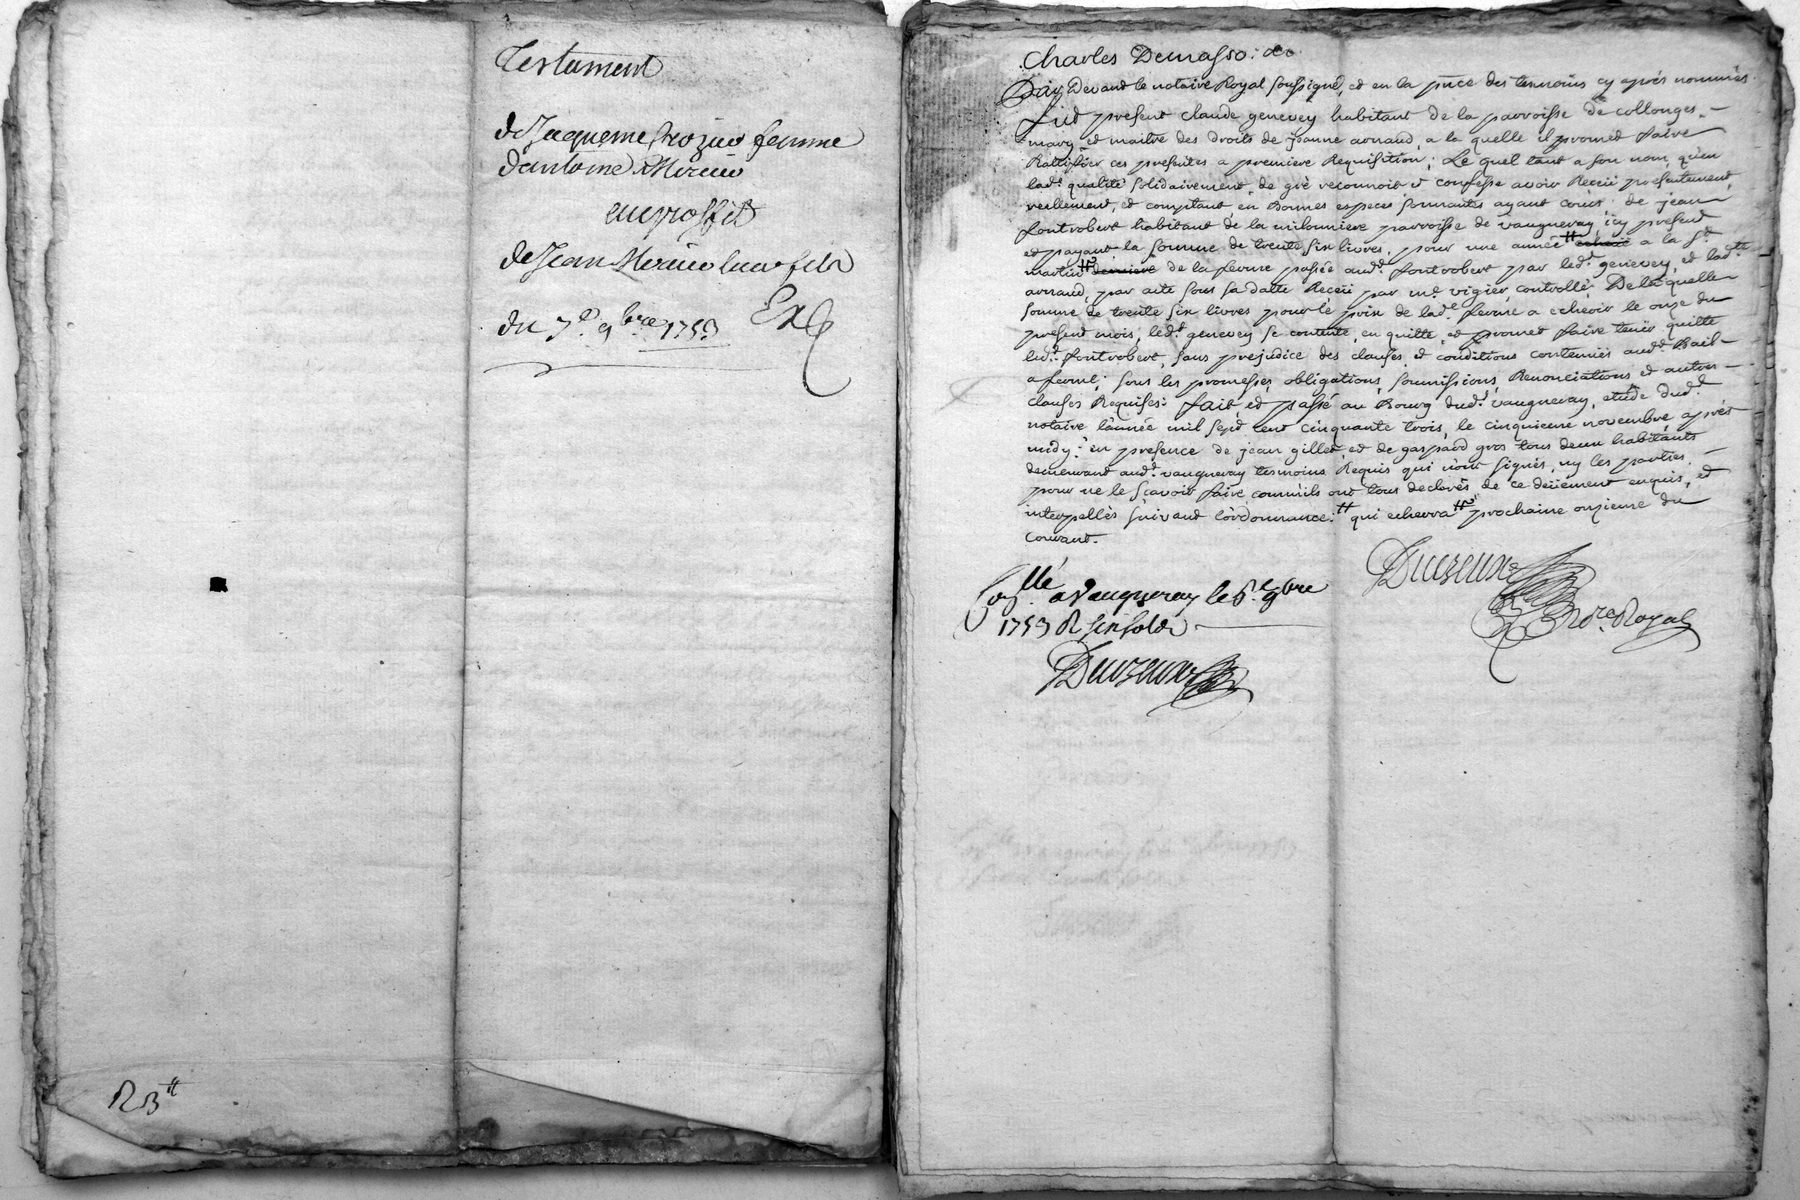 Testament
de Jaqueme femme
dantoine Mercier
au proffit
de Jean Mercier leur fils
du 7e. 9bre 1753 Ex
R 3tt
Charles Demasso: &a.
Par Devant le notaire Royal soussigné, et en la pnce des tesmoins cy aprés nommés
fut present claude genevey habitant de la parroisse de collonges –
mary et maitre des droits de Jeanne arnaud, a la quelle il promet faire
Rattifier ces presentes a premiere Requisition; Le quel tant a son nom, qu'en
lade. qualité solidairement, de gré reconnoit et confesse avoir Receü presentement,
reellement, et comptant en Bonnes especes sonnantes ayant cours: de jean
fontrobert habitant de la milonniere parroisse de vaugneray, icy present
et payant la somme de trente six livres, pour une année # a la St.
martin # derniere de la ferme passée audt. fontrobert par ledt. genevey, et ladte
arnaud, par acte sous sa datte Receü par me. vigier, controllé; De la quelle
somme de trente six livres pour le prix de lade. ferme a echeoir le onze du
present mois, ledt. genevey se contente, en quitte, et promet faire tenir quitte
ledt. fontrobert, sans prejudice des clauses et conditions contenües audt. Bail –
a ferme; sous les promesses, obligations, soumissions, Renonciations et autres –
clauses Requises: fait, et passé au Bourg dudt. vaugneray, etude dudt.
notaire l'année mil sept cent cinquante trois, le cinquieme novembre, aprés
midy: en presence de jean gillet, et de gaspard gros tous deux habitants
demeurant audt. vaugneray tesmoins Requis qui n'ont signés, ny les parties, –
pour ne le sçavoir faire comm'ils ont tous declarés de ce deüement enquis, et
interpellés suivant l'ordonnance: # qui echerra # prochaine onzieme du
courant.
Duvzeux
Nre. Royal
Conllé a Vaugneray le 6e. 9bre
1753 R six sols
Duvzeux